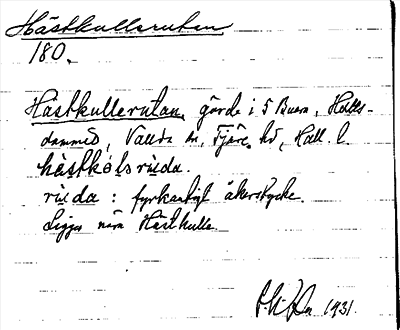 Hästkullerutan
180.
Hästkullerutan, gärde i 5 Buera, Halls-
dammed, Vallda sn, Fjäre hd, Hall. l.
hästkolsruda.
ruda: fyrkantigt åkerstycke.
Ligger nära Hästkulle.
1931.